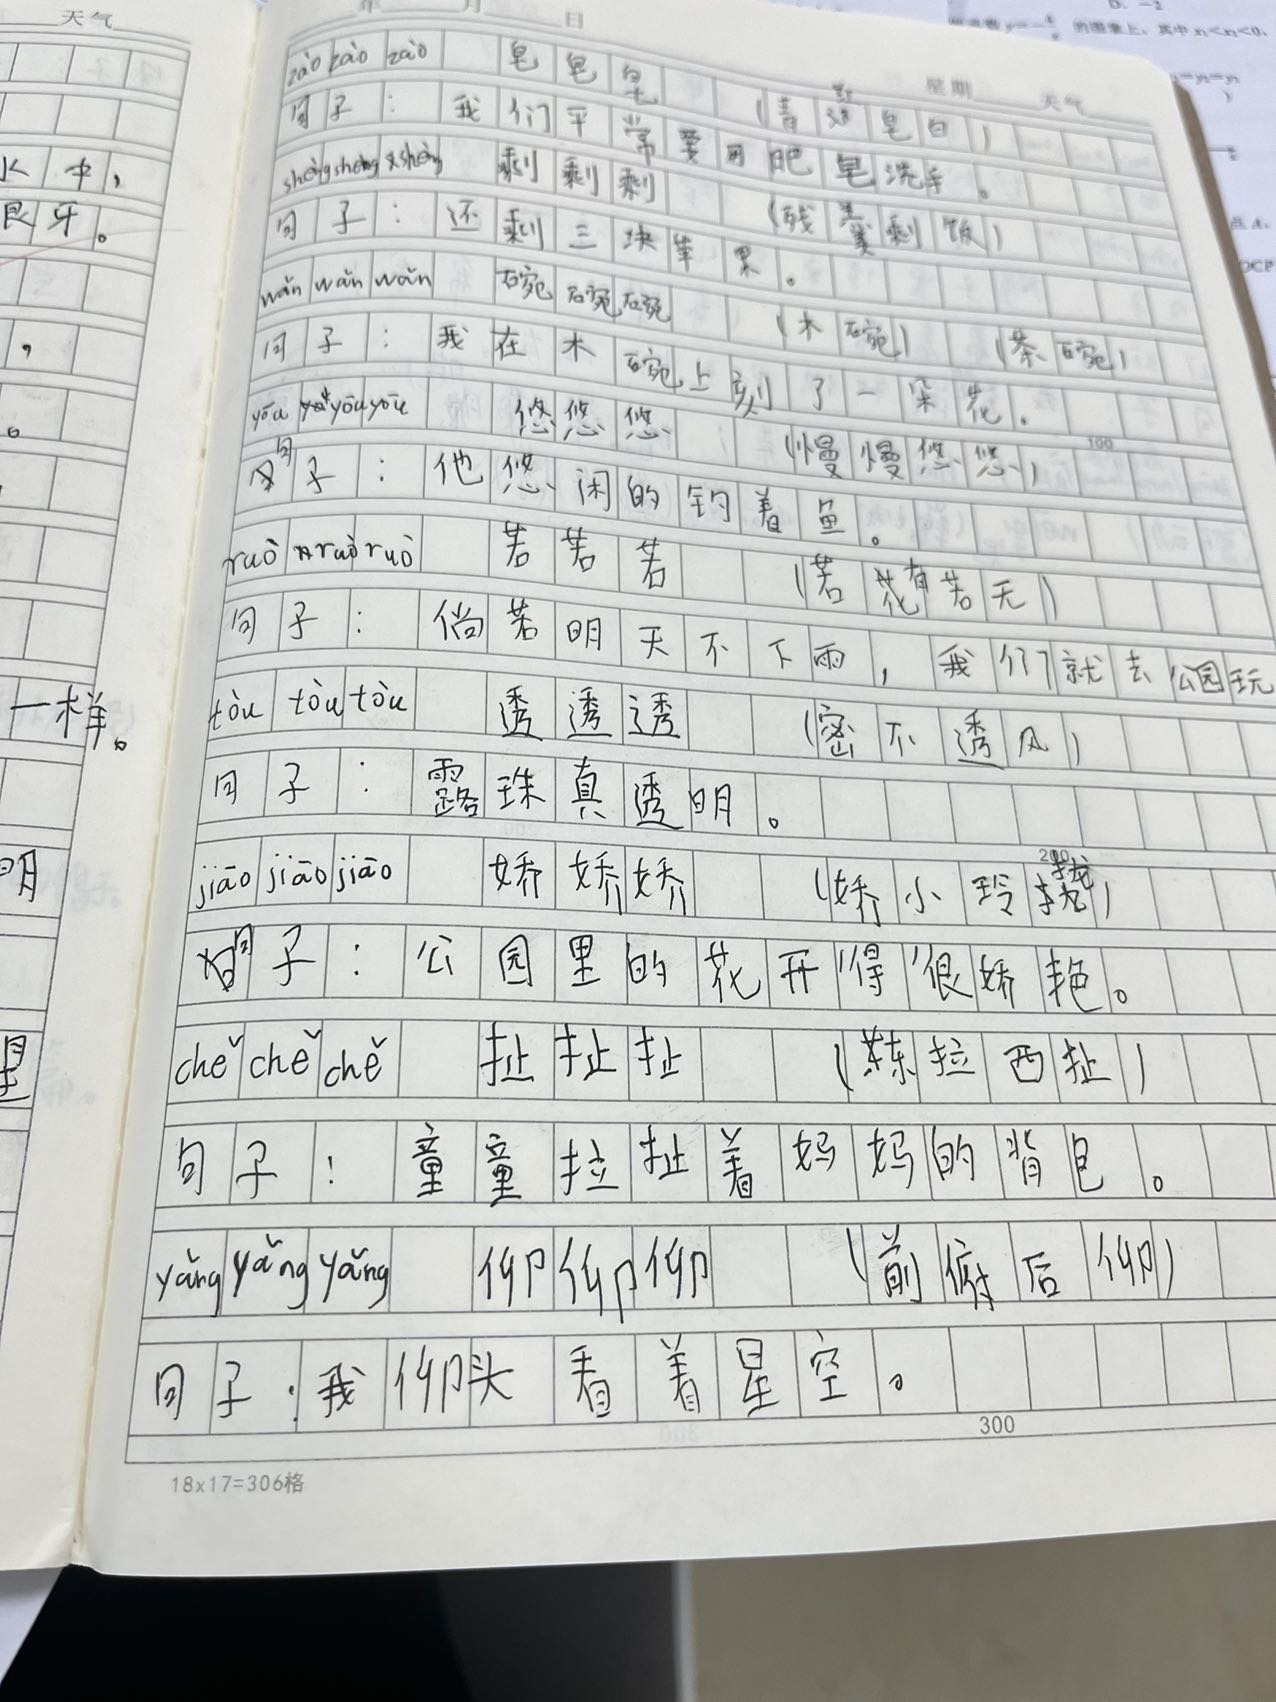 天气
年 月 日
星期 天气
水中,
良牙。
,
。
一样。
明
星
D. -2
的图象上,其中
zào zào zào 皂皂皂 (青红皂白)
句子:我们平常要用肥皂洗手。
shèng shèng shèng 剩剩剩 (残羹剩饭)
句子:还剩三块苹果。
wǎn wǎn wǎn 碗碗碗 (木碗) (茶碗)
句子:我在木碗上刻了一朵花。
yōu yōu yōu 悠悠悠 (慢慢悠悠)
100
句子:他悠闲的钓着鱼。
ruò ruò ruò 若若若 (若有若无)
句子:倘若明天不下雨,我们就去公园玩
tòu tòu tòu 透透透 (密不透风)
句子:露珠真透明。
200
jiāo jiāo jiāo 娇娇娇 (娇小玲珑)
句子:公园里的花开得很娇艳。
chě chě chě 扯扯扯 (东拉西扯)
句子:童童拉扯着妈妈的背包。
yǎng yǎng yǎng 仰仰仰 (前俯后仰)
句子:我仰头看着星空。
300
18x17=306格